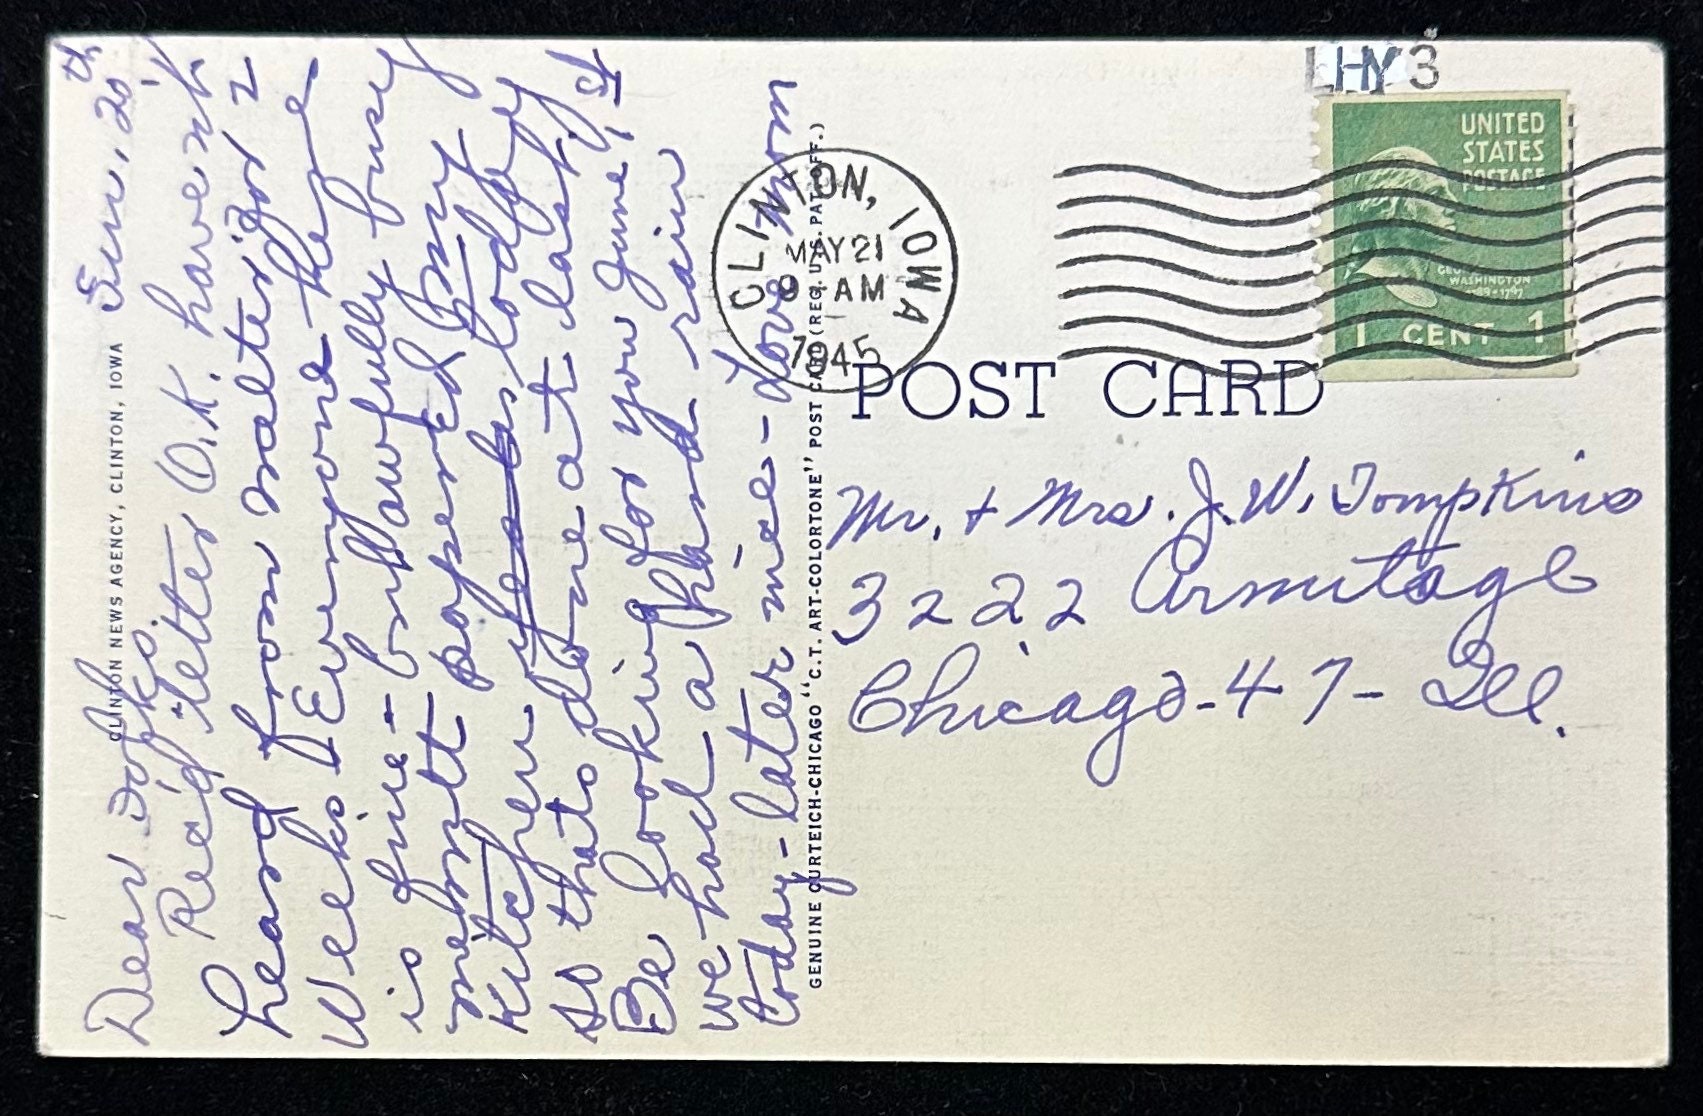 Sun. 20th
Dear Folks.
Rec'd letter O.K. haven't
heard from Walter for 2
Weeks. Everyone here
is fine - but awfully busy
Mehmtt papered my
Kitchen yesterday
so thats done at last,
Be looking for you June 1st
we had a hard rain
today - later nice - Love Mom
CLINTON NEWS AGENCY, CLINTON, IOWA
GENUINE CURTEICH-CHICAGO "C.T. ART-COLORTONE" POST CARD (REG. U.S. PAT. OFF.)
LHY3
CLINTON, IOWA
MAY 21
9 - AM
1945
UNITED
STATES
POSTAGE
GEORGE
WASHINGTON
1789-1797
1 CENT 1
POST CARD
Mr. + Mrs. J. W. Tompkins
3222 Armitage
Chicago - 47 - Ill.